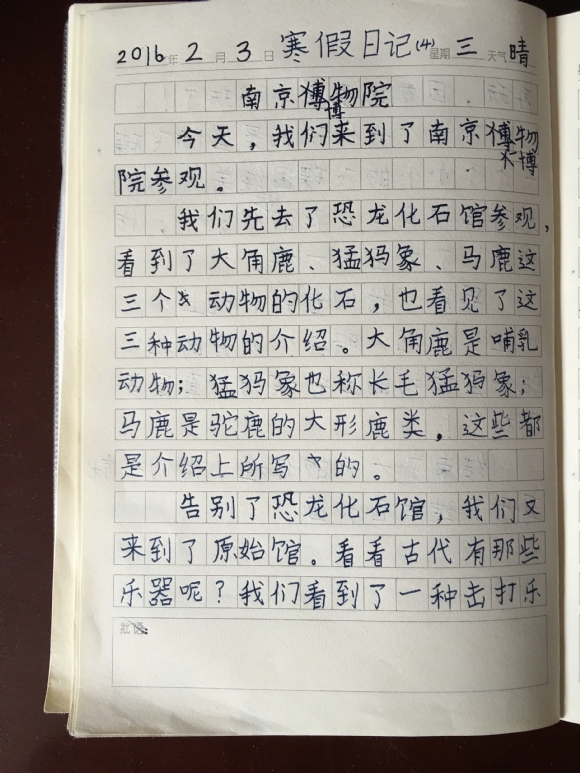 2016年2月3日 寒假日记(4) 星期三 天气晴
南京博物院
博
今天，我们来到了南京博物
博
院参观。
我们先去了恐龙化石馆参观，
看到了大角鹿、猛犸象、马鹿这
三个动物的化石，也看见了这
三种动物的介绍。大角鹿是哺乳
动物；猛犸象也称长毛猛犸象；
马鹿是驼鹿的大形鹿类，这些都
是介绍上所写的。
告别了恐龙化石馆，我们又
来到了原始馆。看看古代有那些
乐器呢？我们看到了一种击打乐
批语